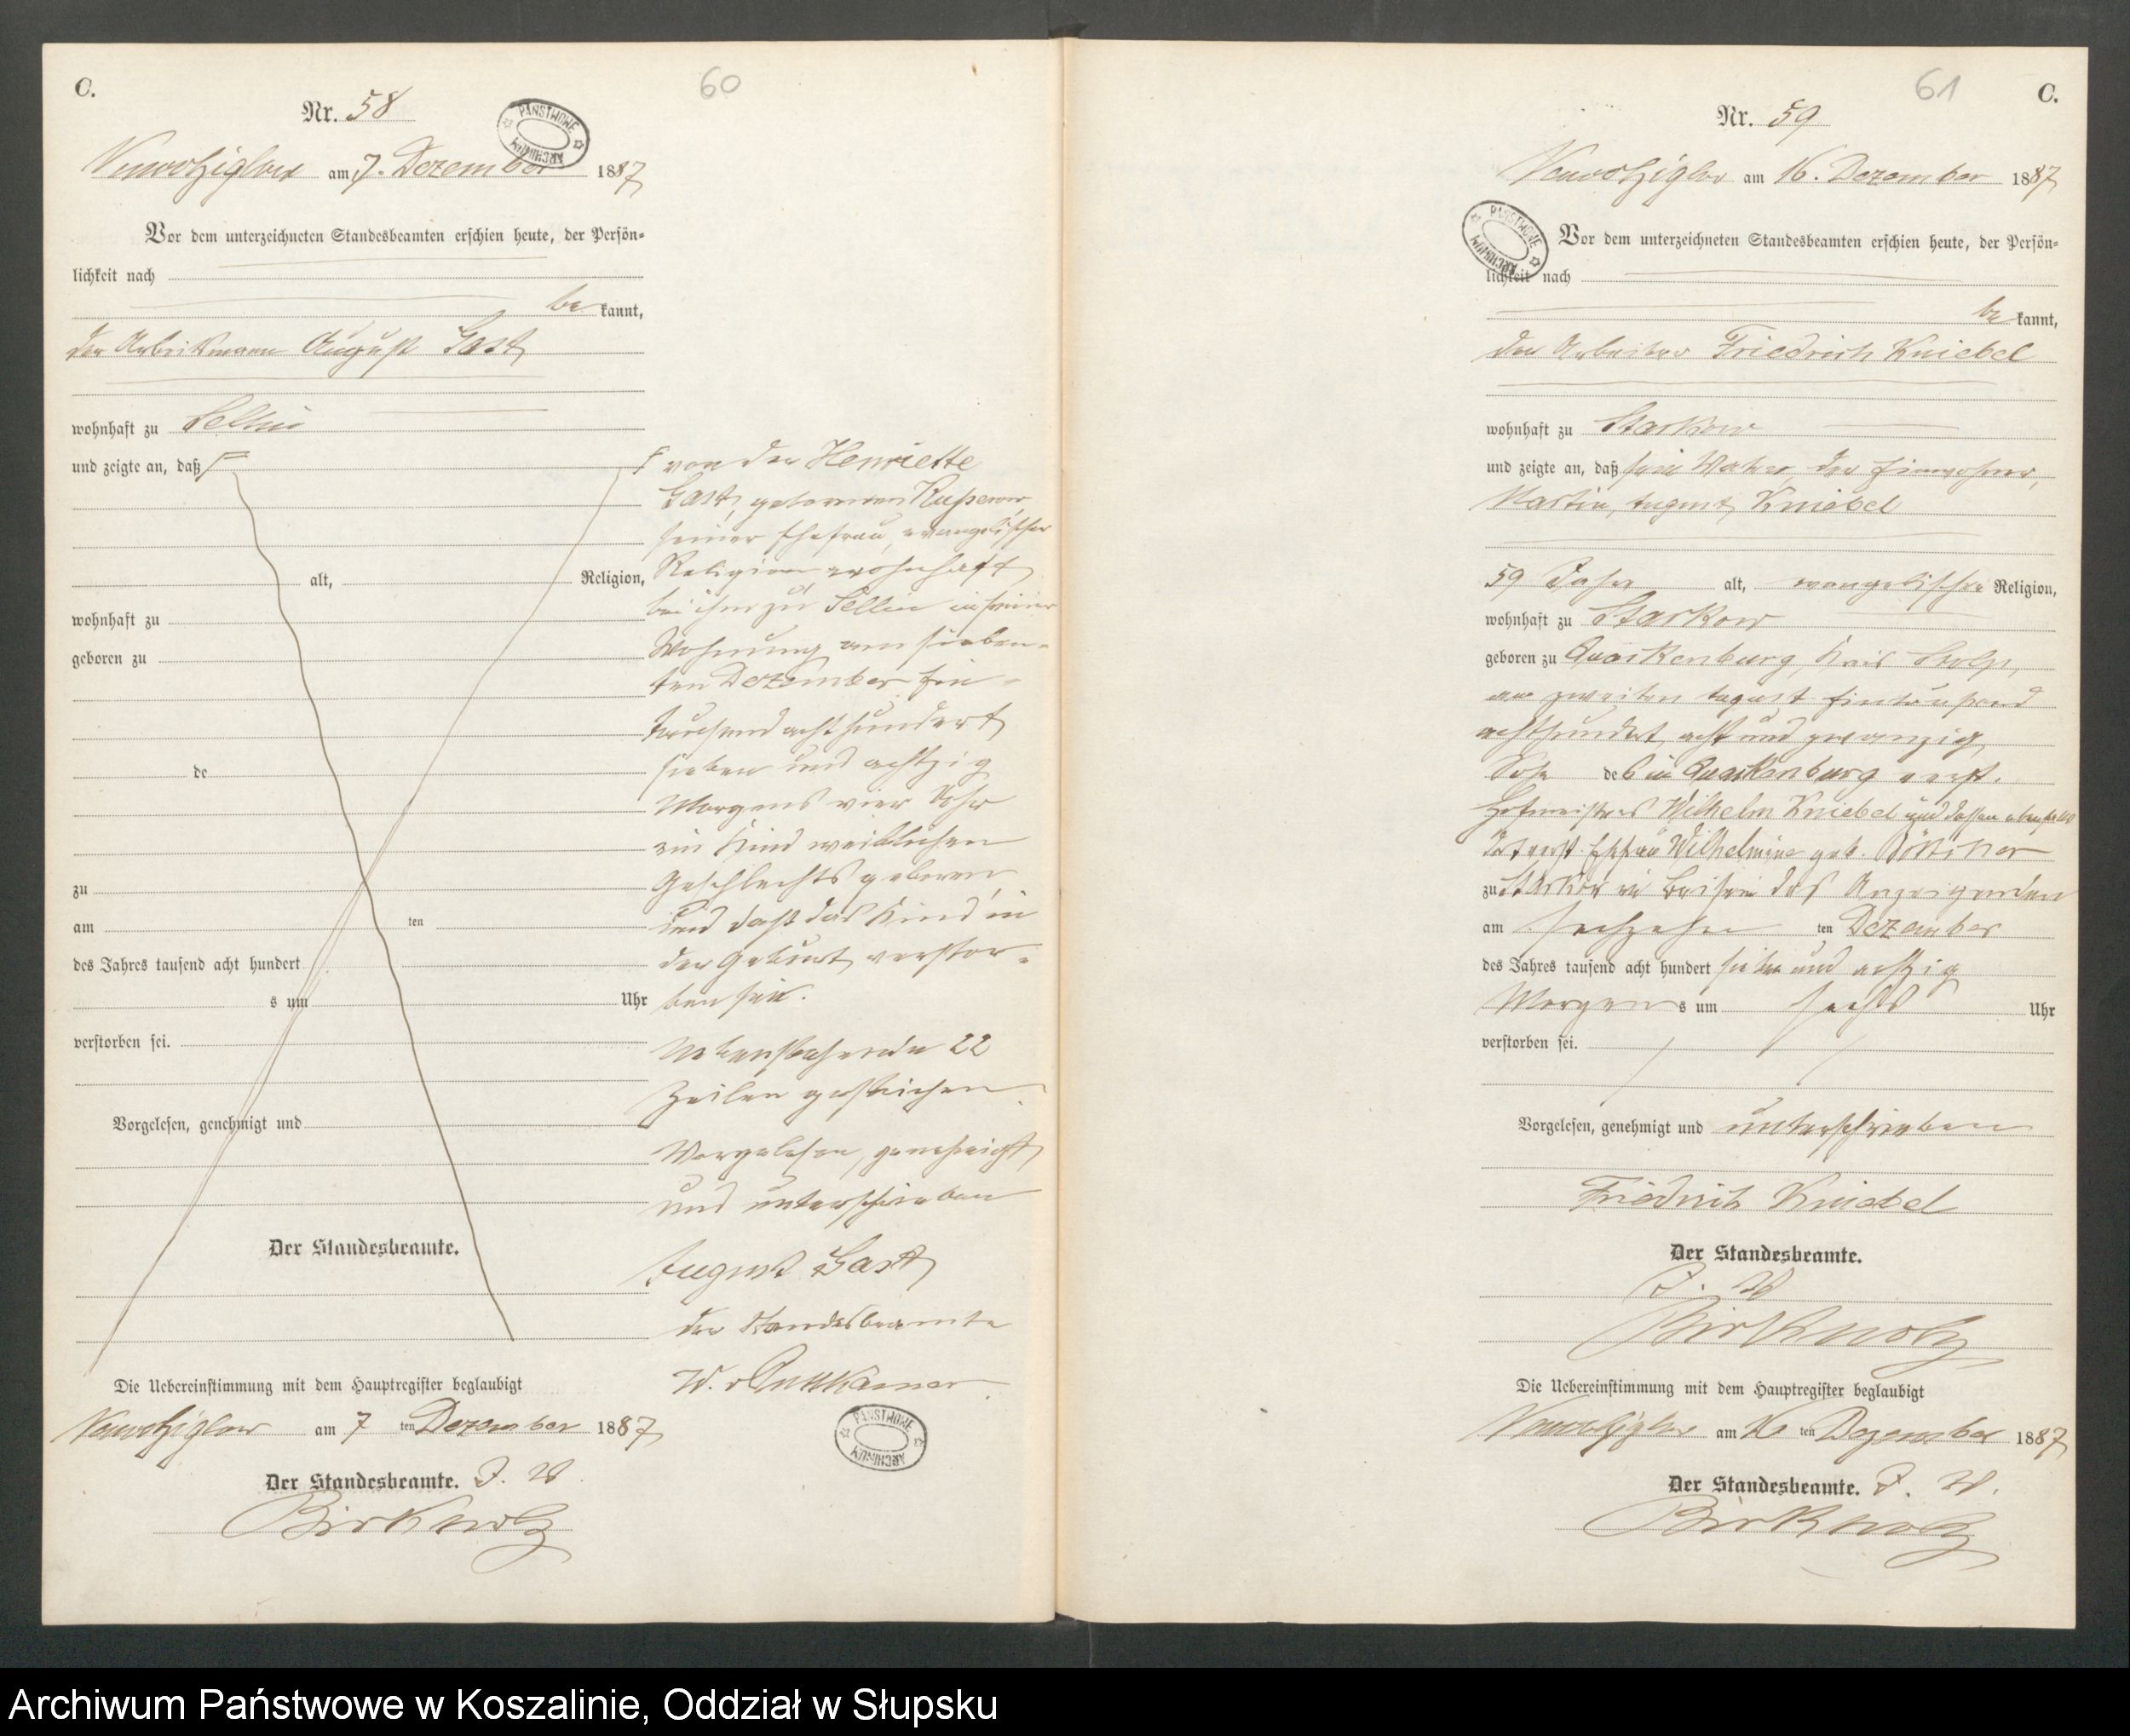 C.
60
Nr. 58
PAŃSTWOWE ARCHIWUM
Neuwohziglow am 7. Dezember 1887
Vor dem unterzeichneten Standesbeamten erschien heute, der Persön=
lichkeit nach
be kannt,
der Arbeitsmann August Gast
wohnhaft zu Sellin
und zeigte an, daß
alt, Religion,
wohnhaft zu
geboren zu
de
zu
am ten
des Jahres tausend acht hundert
s um Uhr
verstorben sei.
Vorgelesen, genehmigt und
Der Standesbeamte.
von der Henriette
Gast, geborenen
seiner Ehefrau, evangelischer
Religion, wohnhaft
bei ihm zu Sellin in seiner
Wohnung am sieben=
ten Dezember Ein=
tausend acht hundert
sieben und achtzig
Morgens vier Uhr
ein Kind weiblichen
Geschlechts geboren
und daß das Kind in
der Geburt verstor=
ben sei.
Nebenstehende 22
Zeilen gestrichen.
Vorgelesen, genehmigt
und unterschrieben
August Gast
der Standesbeamte
W. v Puttkamer
PAŃSTWOWE ARCHIWUM
Die Uebereinstimmung mit dem Hauptregister beglaubigt
Neuwohziglow am 7 ten Dezember 1887
Der Standesbeamte. J. V.
Birkholz
61
C.
Nr. 59
Neuwohziglow am 16. Dezember 1887
PAŃSTWOWE ARCHIWUM
Vor dem unterzeichneten Standesbeamten erschien heute, der Persön=
lichkeit nach
be kannt,
der Arbeiter Friedrich Kniebel
wohnhaft zu Starkow
und zeigte an, daß sein Vater, der Einwohner,
Martin, August Kniebel
59 Jahr alt, evangelischer Religion,
wohnhaft zu Starkow
geboren zu Quackenburg, Kreis Stolp,
am zweiten August Eintausend
achthundert acht und zwanzig,
Sohn des in Quackenburg verst.
Hofmeisters Wilhelm Kniebel und dessen ebenfalls
verst. Ehefrau Wilhelmine geb.
zu Starkow im Beisein des Anzeigenden
am sechzehn ten Dezember
des Jahres tausend acht hundert sieben und achtzig
Morgens um sechs Uhr
verstorben sei.
Vorgelesen, genehmigt und unterschrieben
Friedrich Kniebel
Der Standesbeamte.
J. V.
Birkholz
Die Uebereinstimmung mit dem Hauptregister beglaubigt
Neuwohziglow am 16 ten Dezember 1887
Der Standesbeamte. J. V.
Birkholz
Archiwum Państwowe w Koszalinie, Oddział w Słupsku